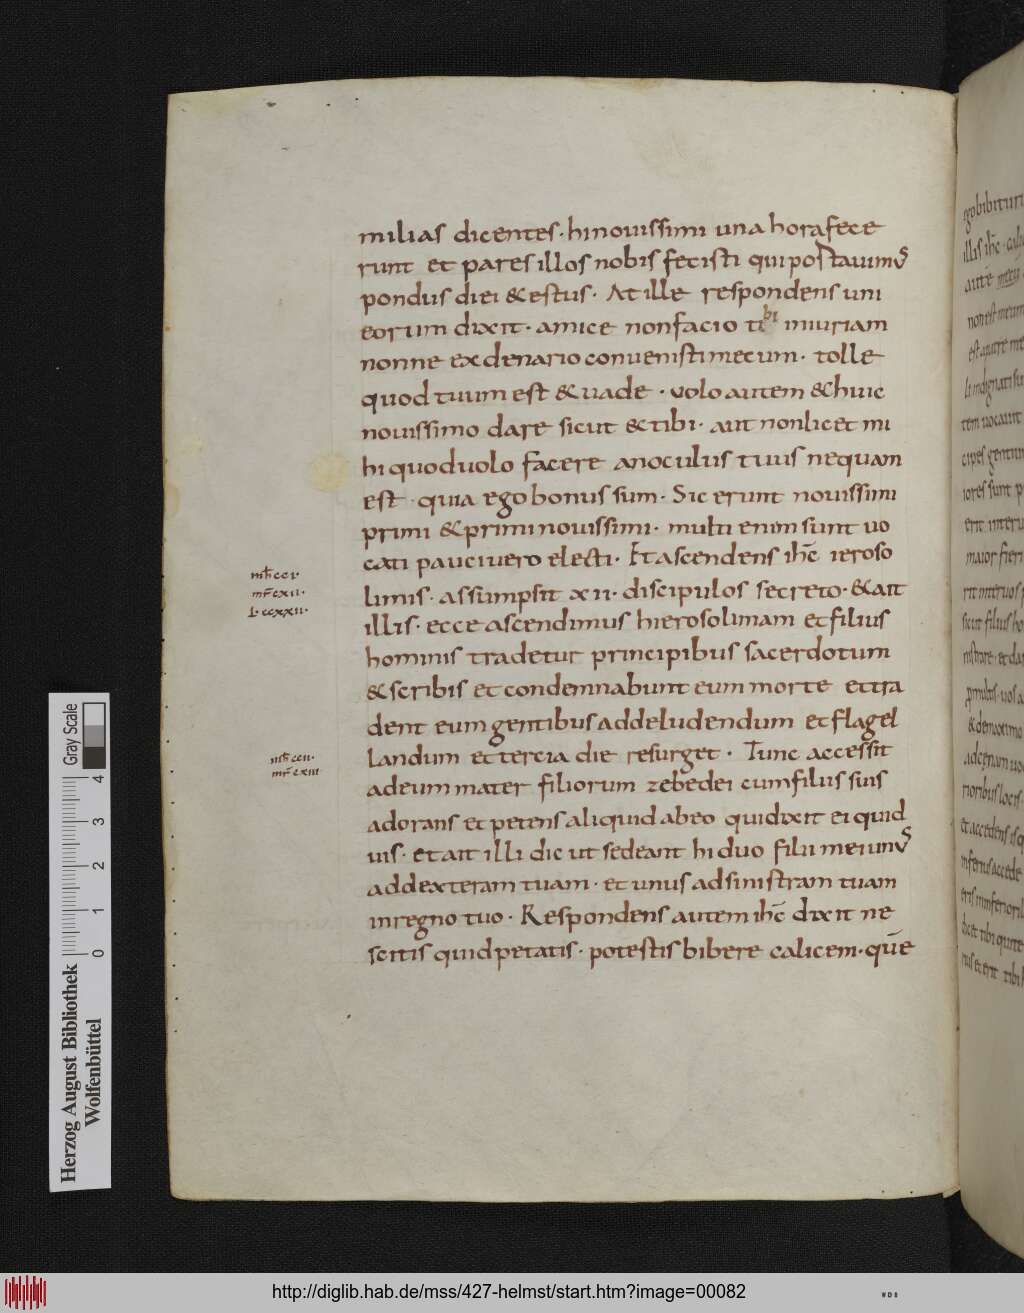 milias dicentes · hi nouissimi una hora fece
runt et pares illos nobis fecisti qui portauim᾽
pondus diei & estus · At ille respondens uni
eorum dixit · amice non facio tibi iniuriam
nonne ex denario conuenisti mecum · tolle
quod tuum est & uade · uolo autem & huic
nouissimo dare sicut & tibi · aut non licet mi
hi quod uolo facere an oculus tuus nequam
est · quia ego bonus sum · Sic erunt nouissimi
primi & primi nouissimi · multi enim sunt uo
cati pauci uero electi · Et ascendens ih̅c ieroso
mt̅ cci ·
mr̅ cxii ·
L · ccxxii ·
limis · assumpsit xii · discipulos secreto · & ait
illis · ecce ascendimus hierosolimam et filius
hominis tradetur principibus sacerdotum
& scribis et condemnabunt eum morte et tra
dent eum gentibus ad deludendum et flagel
landum et tercia die resurget · Tunc accessit
mt̅ ccii ·
mr̅ cxiii
ad eum mater filiorum zebedei cum filiis suis
adorans et petens aliquid ab eo qui dixit ei quid
uis · et ait illi dic ut sedeant hi duo filii mei un᾽
ad dexteram tuam · et unus ad sinistram tuam
in regno tuo · Respondens autem ih̅c dixit ne
scitis quid petatis · potestis bibere calicem · que̅
Herzog August Bibliothek
Wolfenbüttel
Gray Scale
0 1 2 3 4
http://diglib.hab.de/mss/427-helmst/start.htm?image=00082